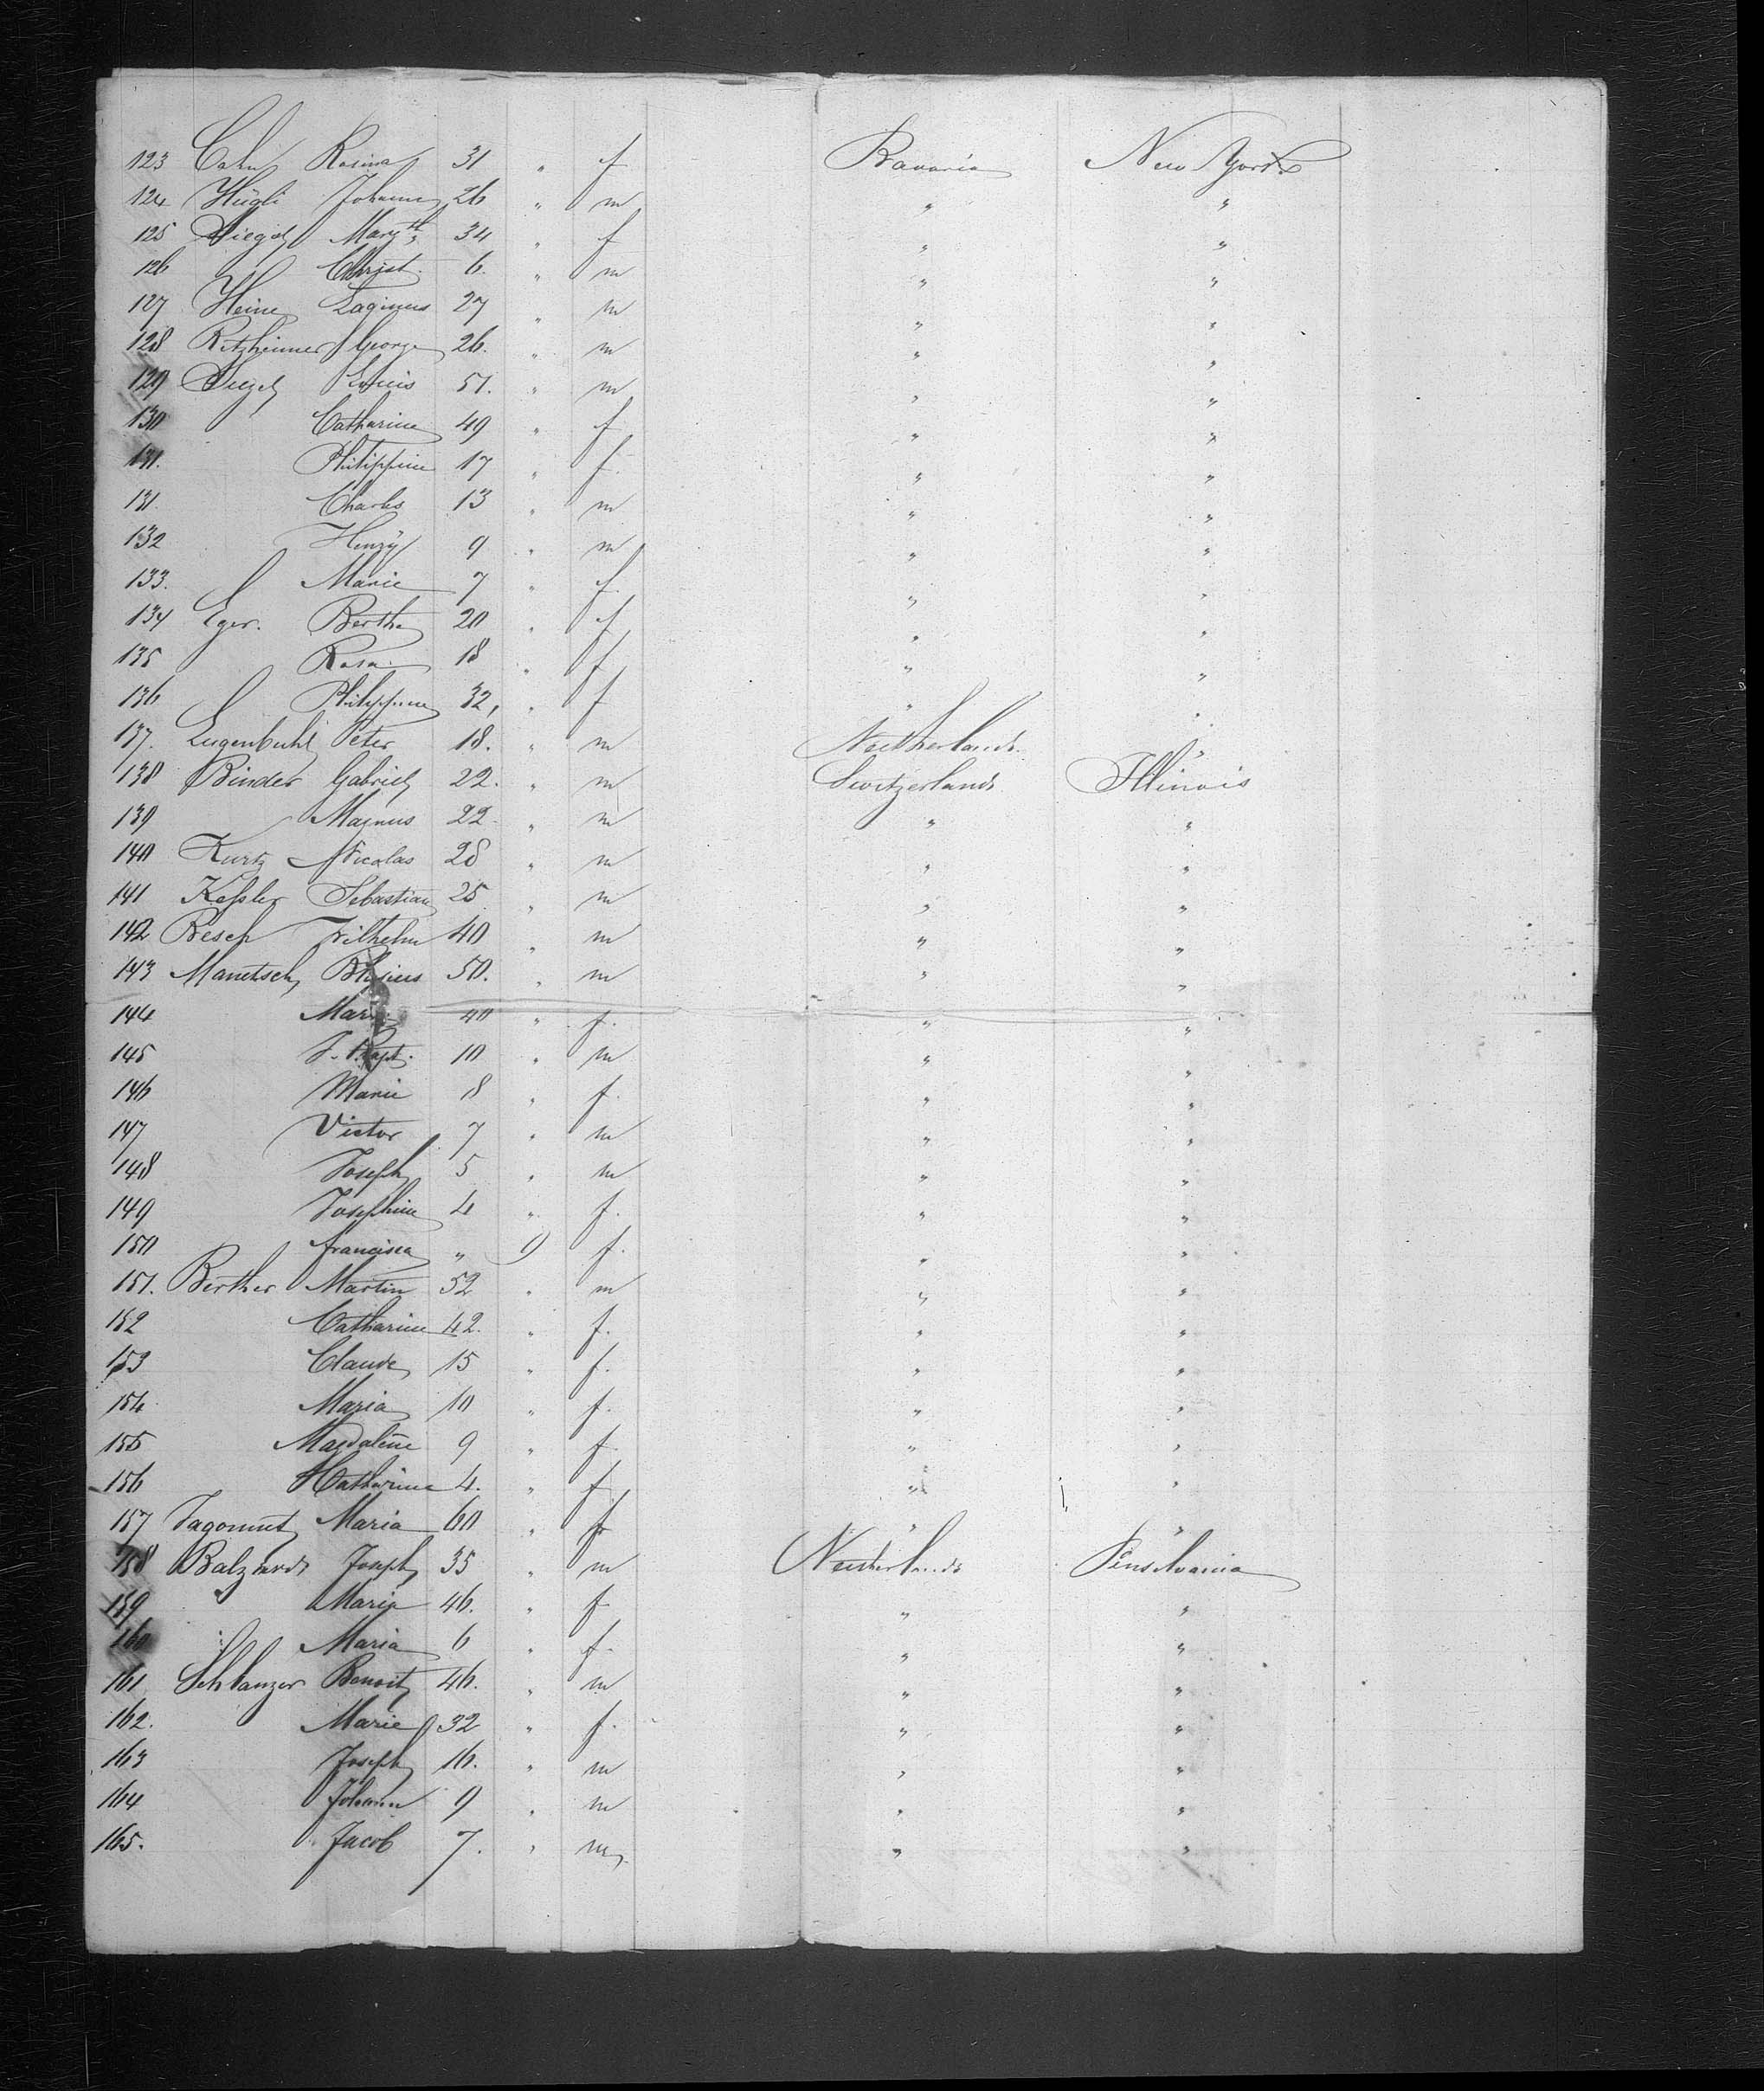 123 Cahn Rosina 31 " f Bavaria New York
124 Hügli Johann 26 " m " "
125 Siegel Margth 34 " f " "
126 Christ. 6. " m " "
127 Heine 27 " m " "
128 Ritzheimer George 26. " m " "
129 Siegel Louis 51. " m " "
130 Catharine 49 " f " "
131. Philippine 17 " f. " "
131. Charles 13 " m " "
132 Henry 9 " m " "
133. Marie 7 " f. " "
134 Eger. Bertha 20 " f " "
135 Rosa 18 " f " "
136 Philippine 32, " f " "
137. Lugenbuhl Peter 18. " m Neitherlands. "
138 Binder Gabriel 22. " m Switzerlands Illinois
139 Magnus 22. " m " "
140 Kurtz Nicolas 28 " m " "
141 Kessler Sebastian 25 " m " "
142 Resch Wilhelm 40 " m " "
143 Manetsch 50. " m " "
144 Marie 40 " f. " "
145 J. Bapt. 10 " m " "
146 Marie 8 " f. " "
147 Victor 7 " m " "
148 Joseph 5 " m " "
149 Josephine 4 " f. " "
150 Francisca " 9 f. " "
151. Berther Martin 52 " m " "
152 Catharine 42. " f. " "
153 Claude 15 " f. " "
154. Maria 10 " f. " "
155 Magdaline 9 " f. " "
156 Catharina 4. " f " "
157 Jagomet Maria 60 " f " "
158 Joseph 35 " m Neitherlands Pensilvania
159 Maria 46. " f " "
160 Maria 6 " f. " "
161 Schlanzer Benoit 46. " m " "
162. Marie 32 " f. " "
163 Joseph 16. " m " "
164 Johann 9 " m " "
165. Jacob 7. " m " "